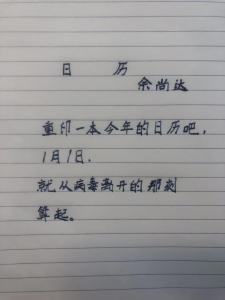 日 历
余尚达
重印一本今年的日历吧，
1月1日．
就从病毒离开的那刻
算起。